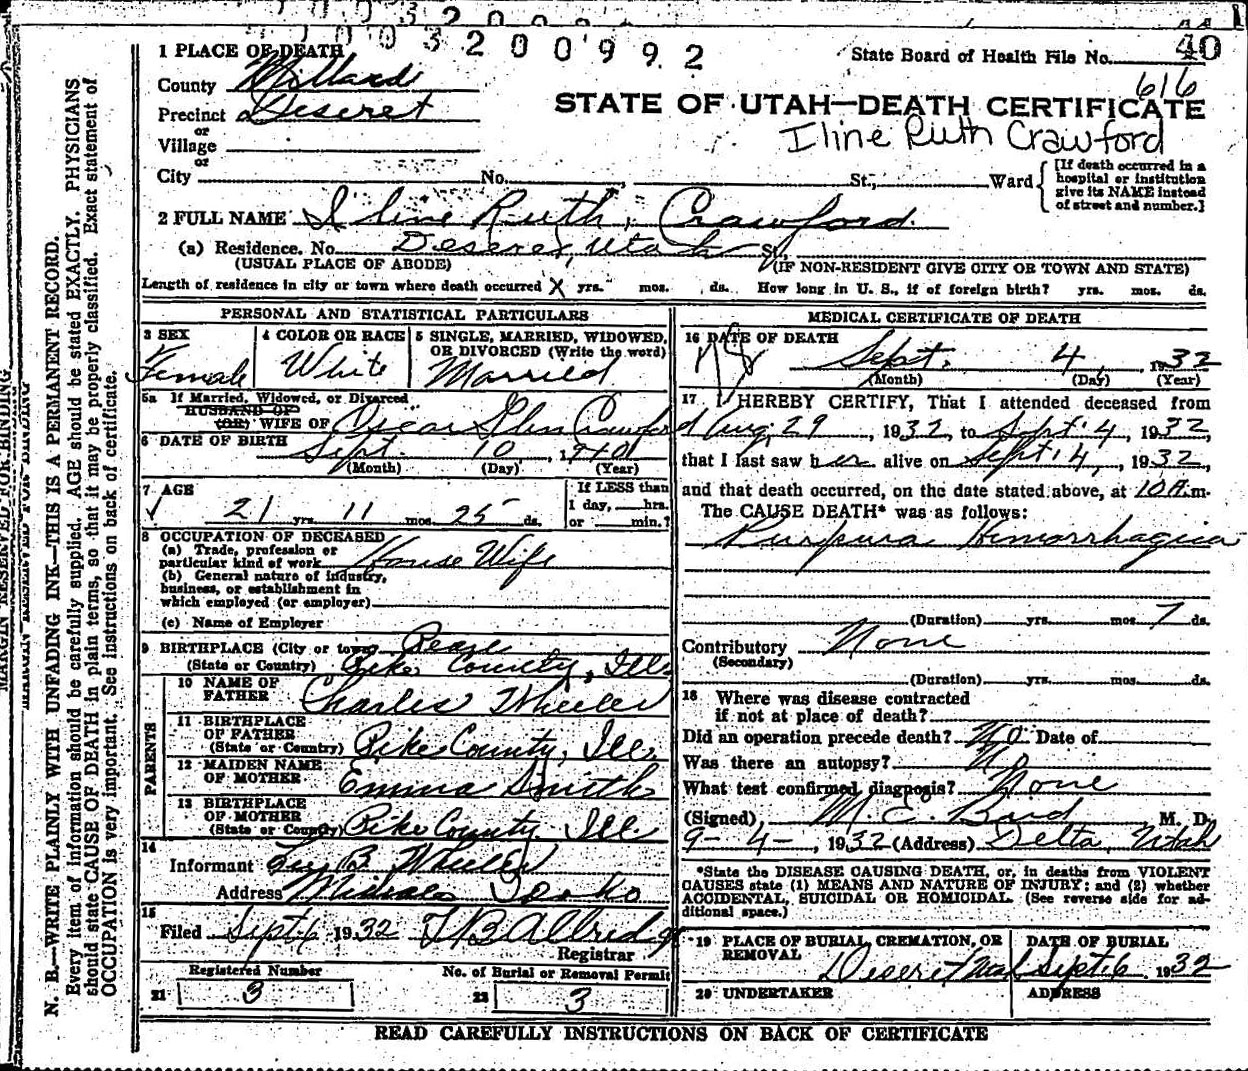 7 0 0 3 2 0 0 9 9 2
1 PLACE OF DEATH
State Board of Health File No. 40
County Millard
616
Precinct Deseret
STATE OF UTAH—DEATH CERTIFICATE
or
Village
Iline Ruth Crawford
or
City No. St., Ward
[If death occurred in a
hospital or institution
give its NAME instead
of street and number.]
2 FULL NAME Iline Ruth, Crawford.
(a) Residence. No. Deseret, Utah St.,
(USUAL PLACE OF ABODE) (IF NON-RESIDENT GIVE CITY OR TOWN AND STATE)
Length of residence in city or town where death occurred X yrs. mos. ds. How long in U. S., if of foreign birth? yrs. mos. ds.
PERSONAL AND STATISTICAL PARTICULARS
3 SEX
Female
4 COLOR OR RACE
White
5 SINGLE, MARRIED, WIDOWED,
OR DIVORCED (Write the word)
Married
5a If Married, Widowed, or Divorced
HUSBAND OF
(OR) WIFE OF Oscar Glen Crawford
6 DATE OF BIRTH
Sept. 10, 1910
(Month) (Day) (Year)
7 AGE
21 yrs. 11 mos. 25 ds.
If LESS than
1 day, hrs.
or min.?
8 OCCUPATION OF DECEASED
(a) Trade, profession or
particular kind of work House Wife
(b) General nature of industry,
business, or establishment in
which employed (or employer)
(c) Name of Employer
9 BIRTHPLACE (City or town) Pearl
(State or Country) Pike County, Ill.
PARENTS
10 NAME OF
FATHER Charles Wheeler
11 BIRTHPLACE
OF FATHER
(State or Country) Pike County, Ill.
12 MAIDEN NAME
OF MOTHER Emma Smith
13 BIRTHPLACE
OF MOTHER
(State or Country) Pike County Ill.
14
Informant B Wheeler
Address
15
Filed Sept 6 1932 T B Allred
Registrar
Registered Number
21 3
No. of Burial or Removal Permit
22 3
MEDICAL CERTIFICATE OF DEATH
16 DATE OF DEATH
Sept. 4 1932
(Month) (Day) (Year)
17 I HEREBY CERTIFY, That I attended deceased from
Aug, 29, 1932, to Sept. 4, 1932,
that I last saw her alive on Sept. 4, 1932,
and that death occurred, on the date stated above, at 10 A.m.
The CAUSE DEATH* was as follows:
Purpura Hemorrhagica
(Duration) yrs. mos. 7 ds.
Contributory None
(Secondary)
(Duration) yrs. mos. ds.
18 Where was disease contracted
if not at place of death?
Did an operation precede death? No. Date of
Was there an autopsy? No
What test confirmed diagnosis? None
(Signed) M. E. Bird, M. D.
9-4-, 1932 (Address) Delta, Utah
*State the DISEASE CAUSING DEATH, or, in deaths from VIOLENT
CAUSES state (1) MEANS AND NATURE OF INJURY; and (2) whether
ACCIDENTAL, SUICIDAL OR HOMICIDAL. (See reverse side for ad-
ditional space.)
19 PLACE OF BURIAL, CREMATION, OR
REMOVAL
Deseret
DATE OF BURIAL
Sept. 6 1932
20 UNDERTAKER
ADDRESS
READ CAREFULLY INSTRUCTIONS ON BACK OF CERTIFICATE
MARGIN RESERVED FOR BINDING
N. B.—WRITE PLAINLY WITH UNFADING INK—THIS IS A PERMANENT RECORD.
Every item of information should be carefully supplied. AGE should be stated EXACTLY. PHYSICIANS
should state CAUSE OF DEATH in plain terms, so that it may be properly classified. Exact statement of
OCCUPATION is very important. See instructions on back of certificate.